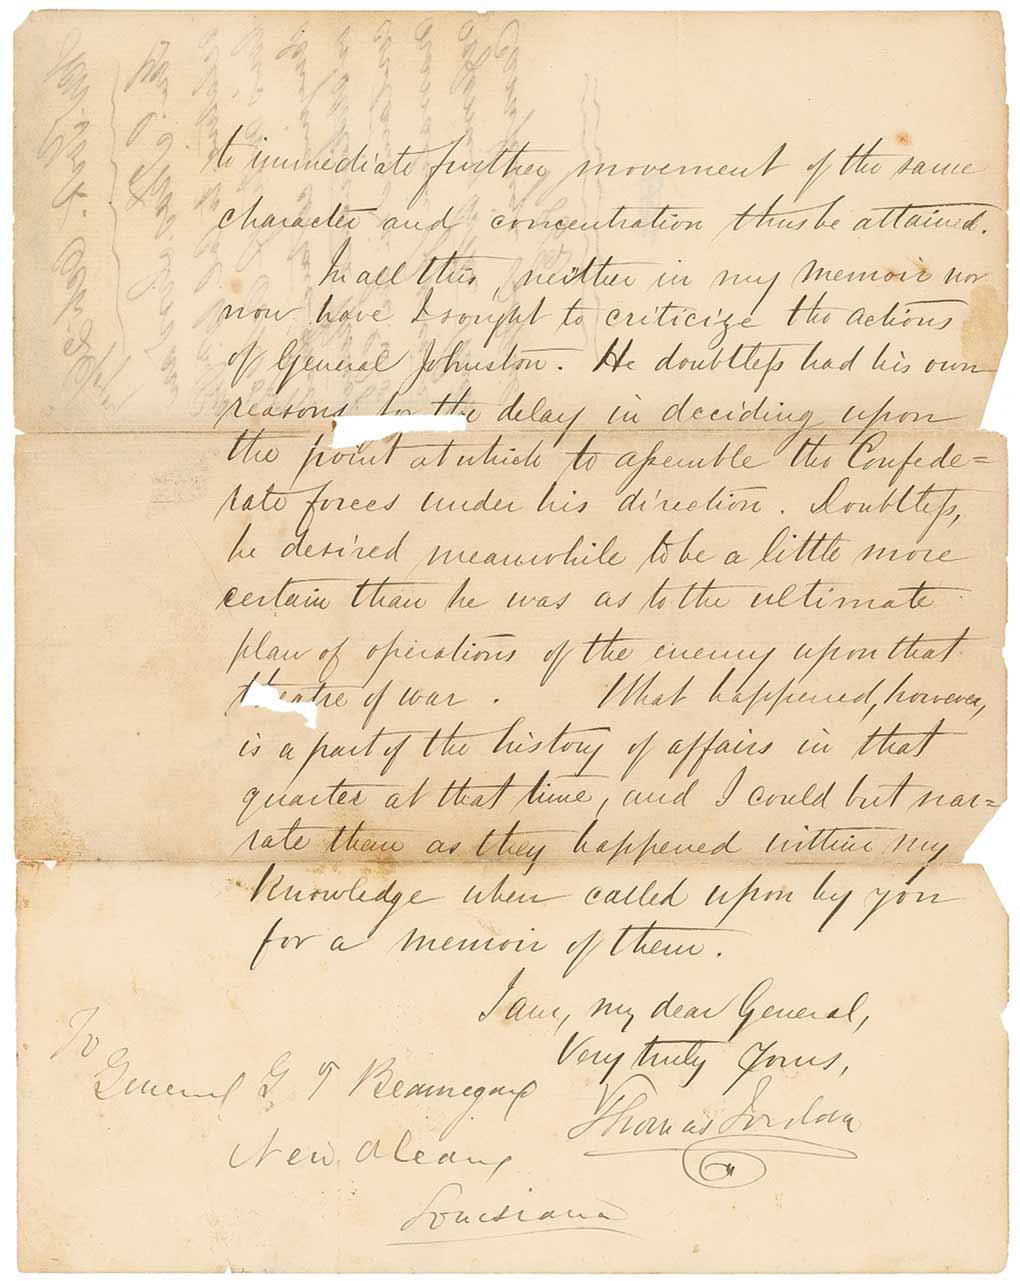 to immediate further movement of the same
character and concentration thus be attained.
In all this, neither in my memoir nor
now have I sought to criticize the actions
of General Johnston. He doubtless had his own
reasons for the delay in deciding upon
the point at which to assemble the Confede=
rate forces under his direction. Doubtless,
he desired meanwhile to be a little more
certain than he was as to the ultimate
plan of operations of the enemy upon that
theatre of war. What happened, however,
is a part of the history of affairs in that
quarter at that time, and I could but nar=
rate them as they happened within my
knowledge when called upon by you
for a memoir of them.
I am, my dear General,
Very truly Yours,
Thomas Jordan
To
General G T Beauregard
New Orleans
Louisiana